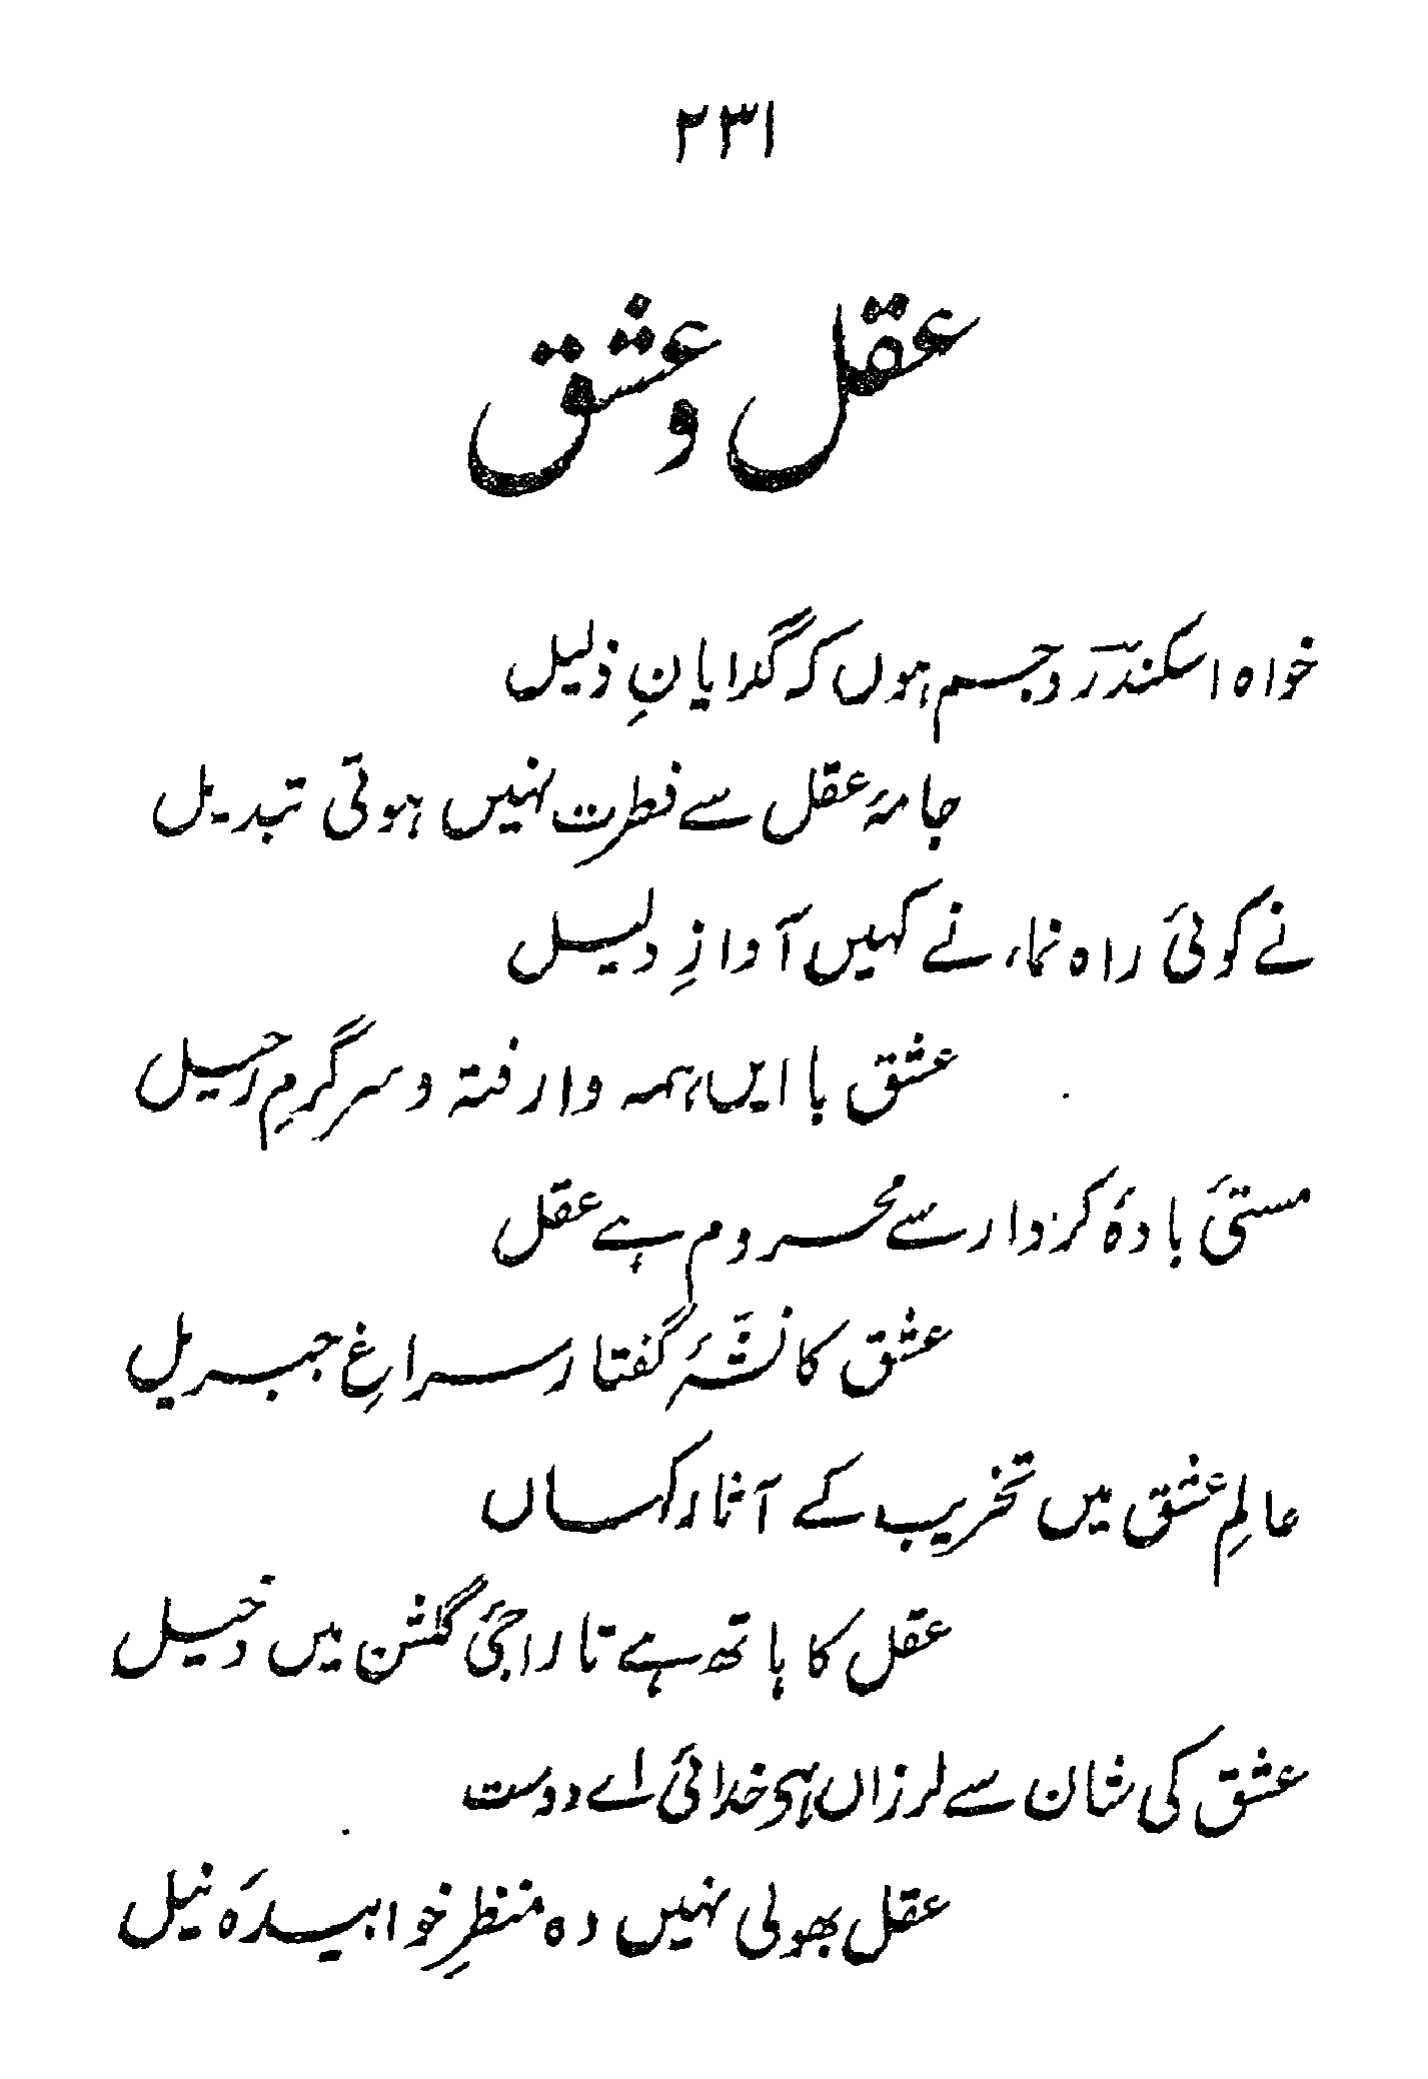 ۲۳۱
عقل و عشق
خواہ اسکندر و جم ہوں کہ گدایانِ ذلیل
جامۂ عقل سے فطرت نہیں ہوتی تبدیل
نے کوئی راہ نما، نے کہیں آوازِ دلیل
عشق با ایں ہمہ وارفتہ و سرگرمِ رحیل
مستیٔ بادۂ کردار سے محروم ہے عقل
عشق کا نشّۂ گفتار سراغِ جبریل
عالمِ عشق میں تخریب کے آثار کہاں
عقل کا ہاتھ ہے تاراجیٔ گلشن میں دخیل
عشق کی شان سے لرزاں ہے خدائی اے دوست
عقل بھولی نہیں وہ منظرِ خوابیدۂ نیل